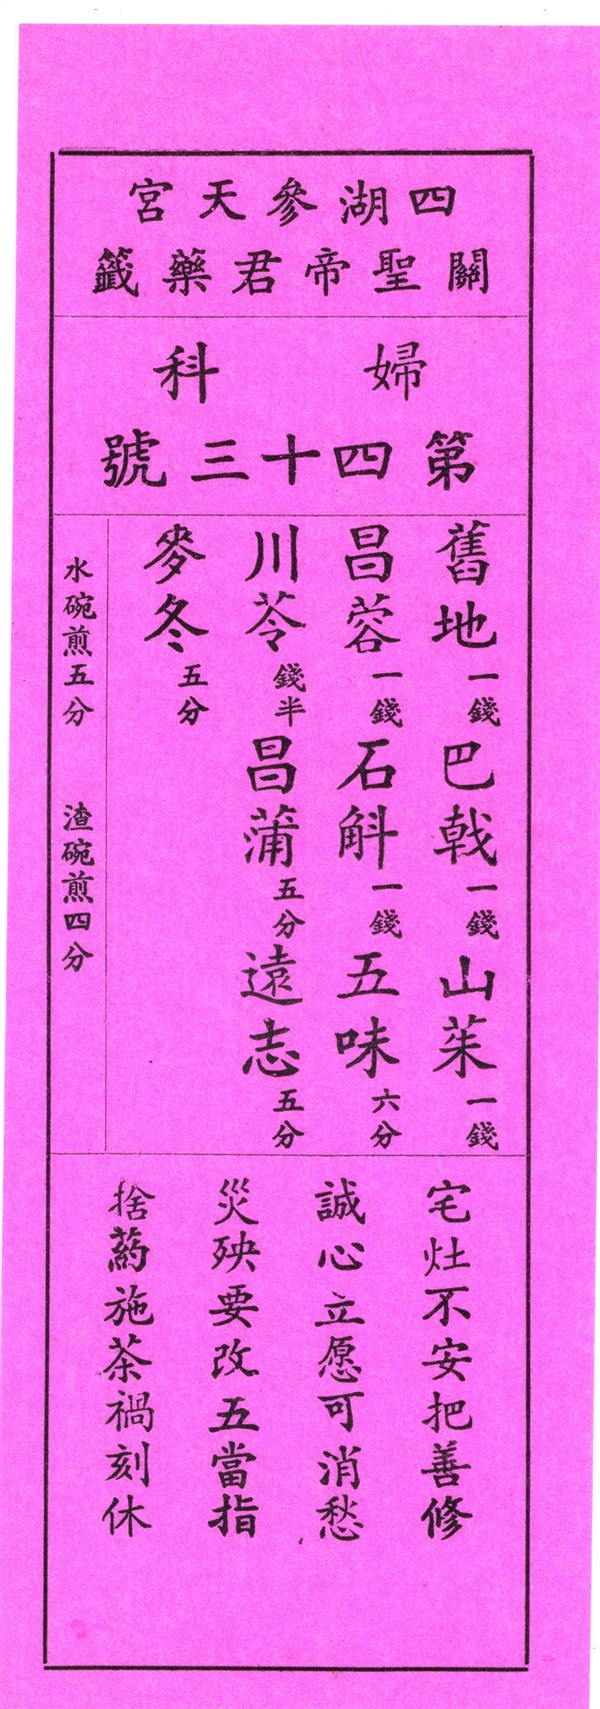 四湖參天宮
關聖帝君藥籤
婦科
第四十三號
舊地一錢 巴戟一錢 山茱一錢
昌蓉一錢 石斛一錢 五味六分
川苓錢半 昌蒲五分 遠志五分
麥冬五分
水碗煎五分 渣碗煎四分
宅灶不安把善修
誠心立愿可消愁
災殃要改五當指
捨葯施茶禍刻休